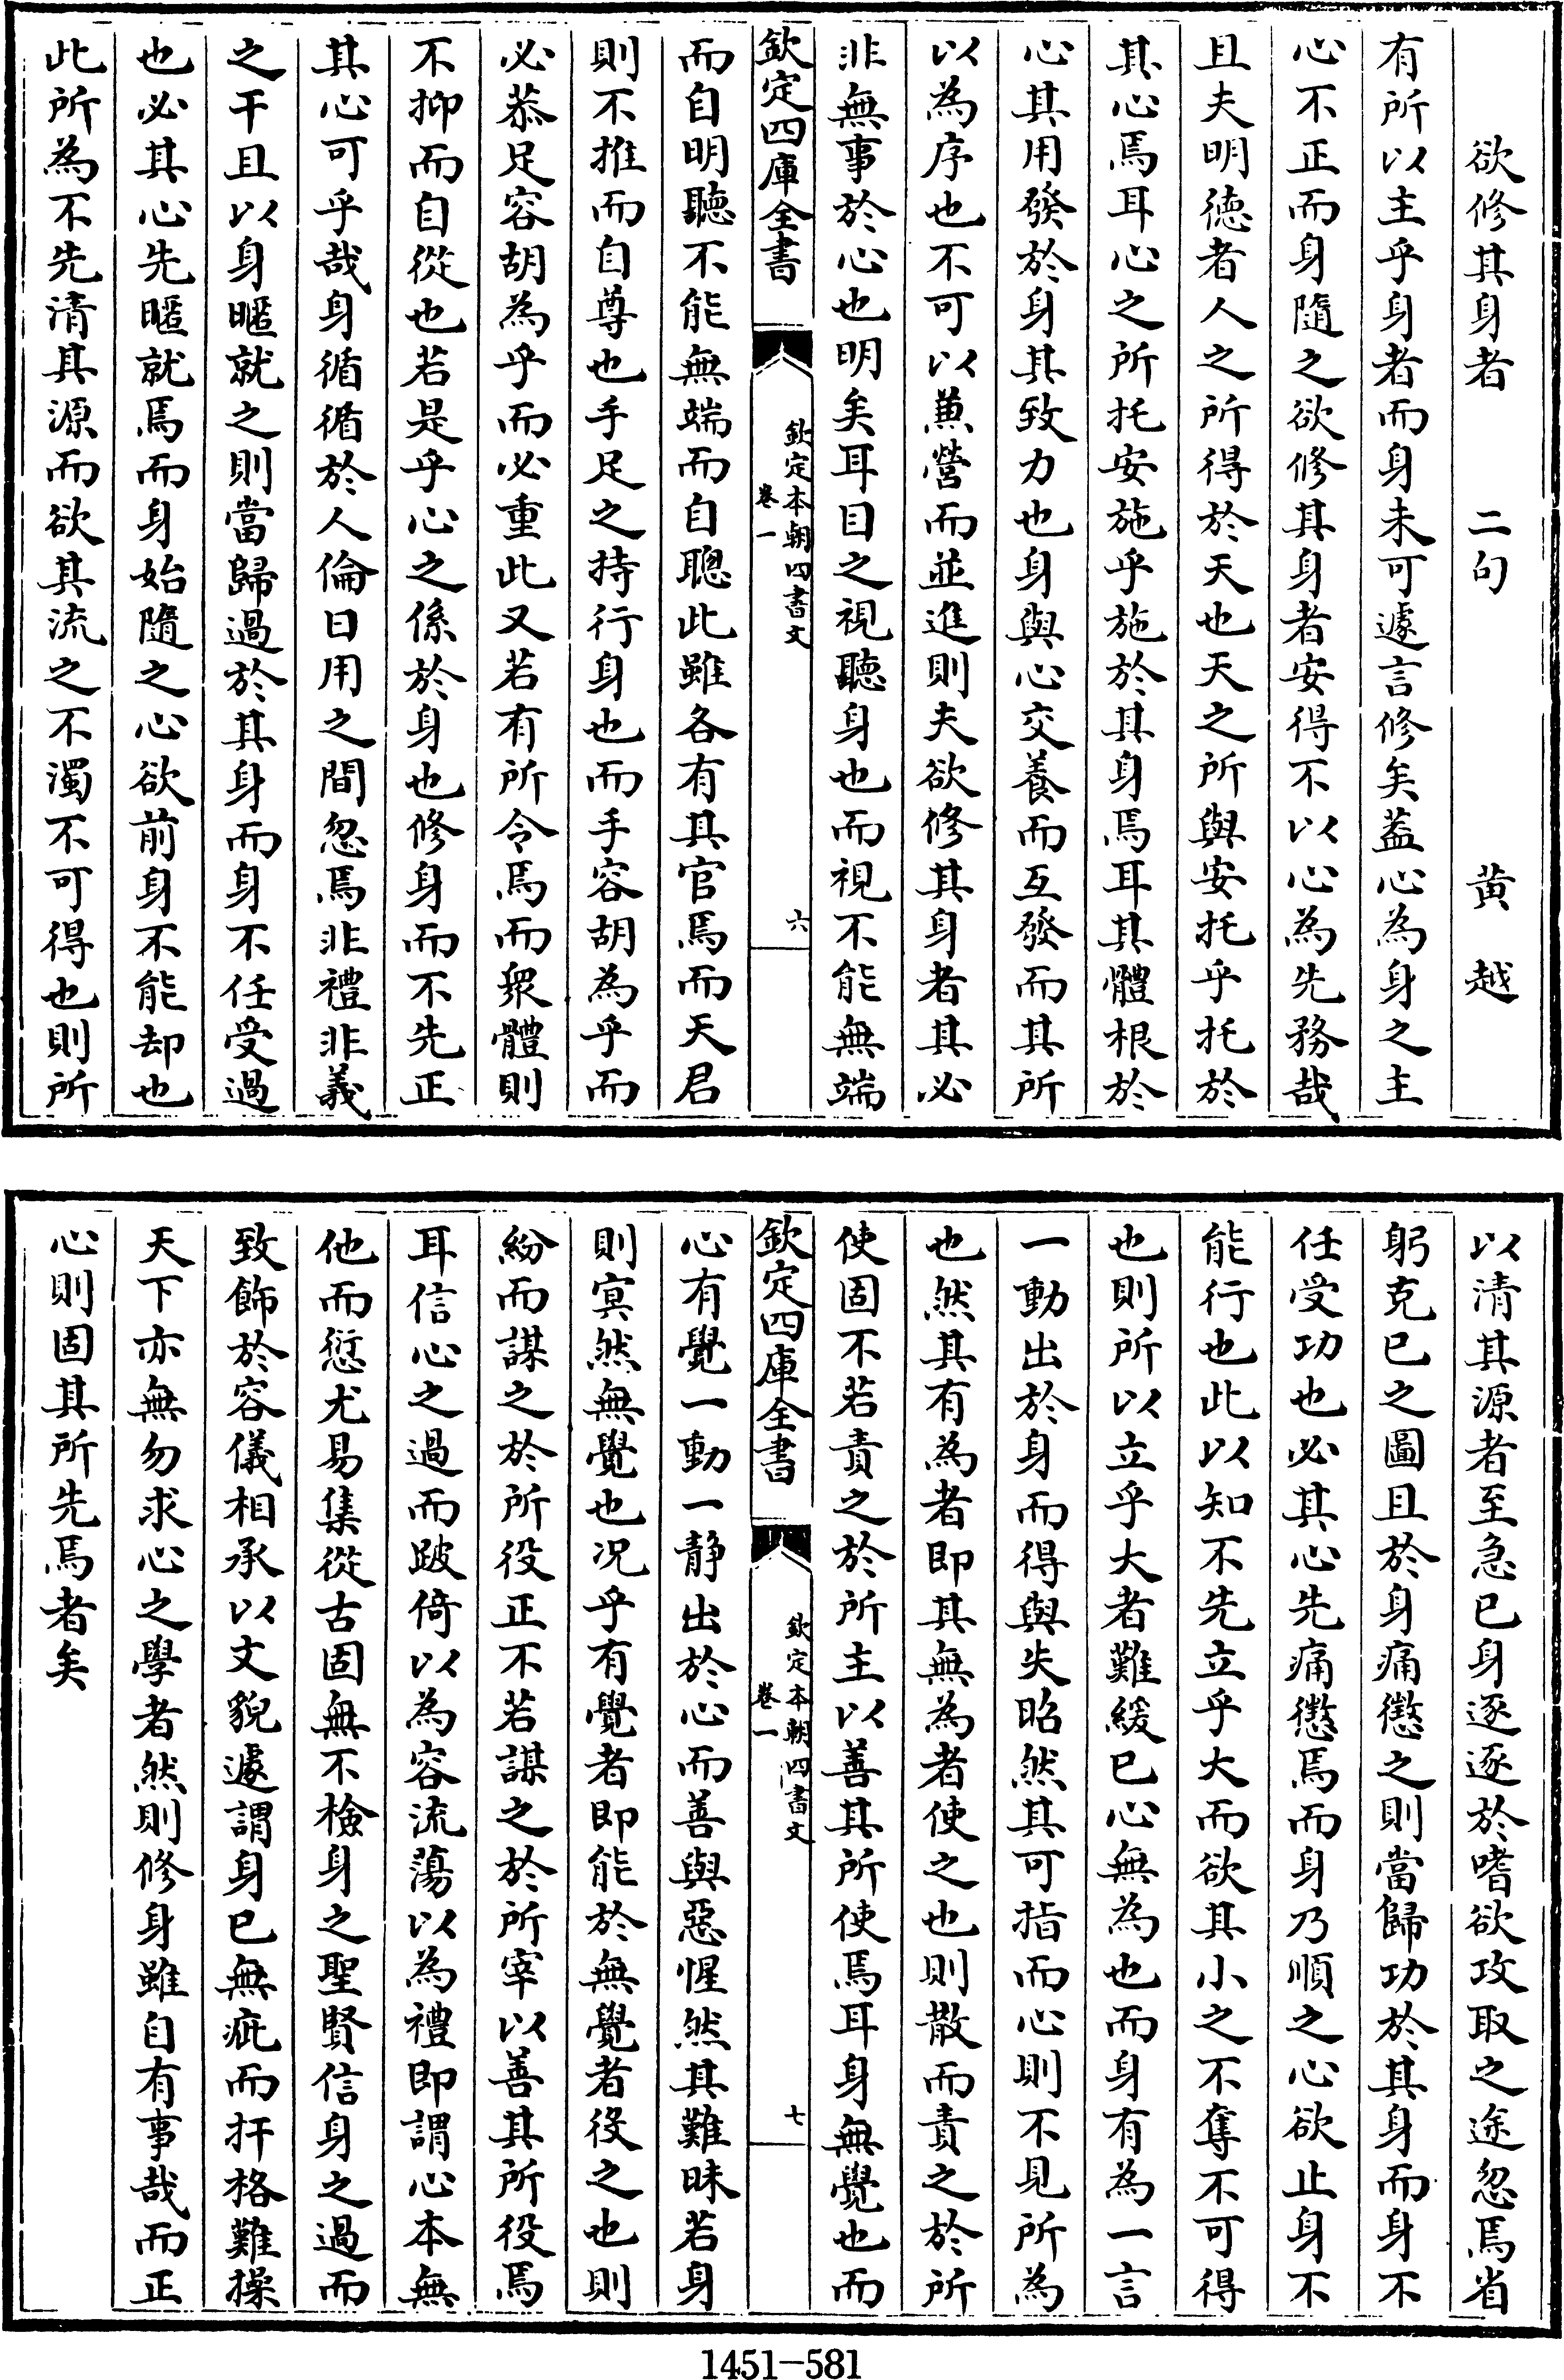 欲修其身者　二句　黄越
有所以主乎身者而身未可遽言修矣蓋心為身之主
心不正而身隨之欲修其身者安得不以心為先務哉
且夫明徳者人之所得於天也天之所與安托乎托於
其心焉耳心之所托安施乎施於其身焉耳其體根於
心其用發於身其致力也身與心交養而互發而其所
以為序也不可以兼營而並進則夫欲修其身者其必
非無事於心也明矣耳目之視聽身也而視不能無端
欽定四庫全書
欽定本朝四書文
卷一
六
而自明聽不能無端而自聰此雖各有其官焉而天君
則不推而自尊也手足之持行身也而手容胡為乎而
必恭足容胡為乎而必重此又若有所令焉而衆體則
不抑而自從也若是乎心之係於身也修身而不先正
其心可乎哉身循循於人倫日用之間忽焉非禮非義
之干且以身暱就之則當歸過於其身而身不任受過
也必其心先暱就焉而身始隨之心欲前身不能却也
此所為不先清其源而欲其流之不濁不可得也則所
以清其源者至急已身逐逐於嗜欲攻取之途忽焉省
躬克已之圖且於身痛懲之則當歸功於其身而身不
任受功也必其心先痛懲焉而身乃順之心欲止身不
能行也此以知不先立乎大而欲其小之不奪不可得
也則所以立乎大者難緩已心無為也而身有為一言
一動出於身而得與失昭然其可指而心則不見所為
也然其有為者即其無為者使之也則散而責之於所
使固不若責之於所主以善其所使焉耳身無覺也而
欽定四庫全書
欽定本朝四書文
卷一
七
心有覺一動一靜出於心而善與惡惺然其難昧若身
則冥然無覺也况乎有覺者即能於無覺者役之也則
紛而謀之於所役正不若謀之於所宰以善其所役焉
耳信心之過而跛倚以為容流蕩以為禮即謂心本無
他而愆尤易集從古固無不檢身之聖賢信身之過而
致飾於容儀相承以文貌遽謂身已無疵而扞格難操
天下亦無勿求心之學者然則修身雖自有事哉而正
心則固其所先焉者矣
1451-581